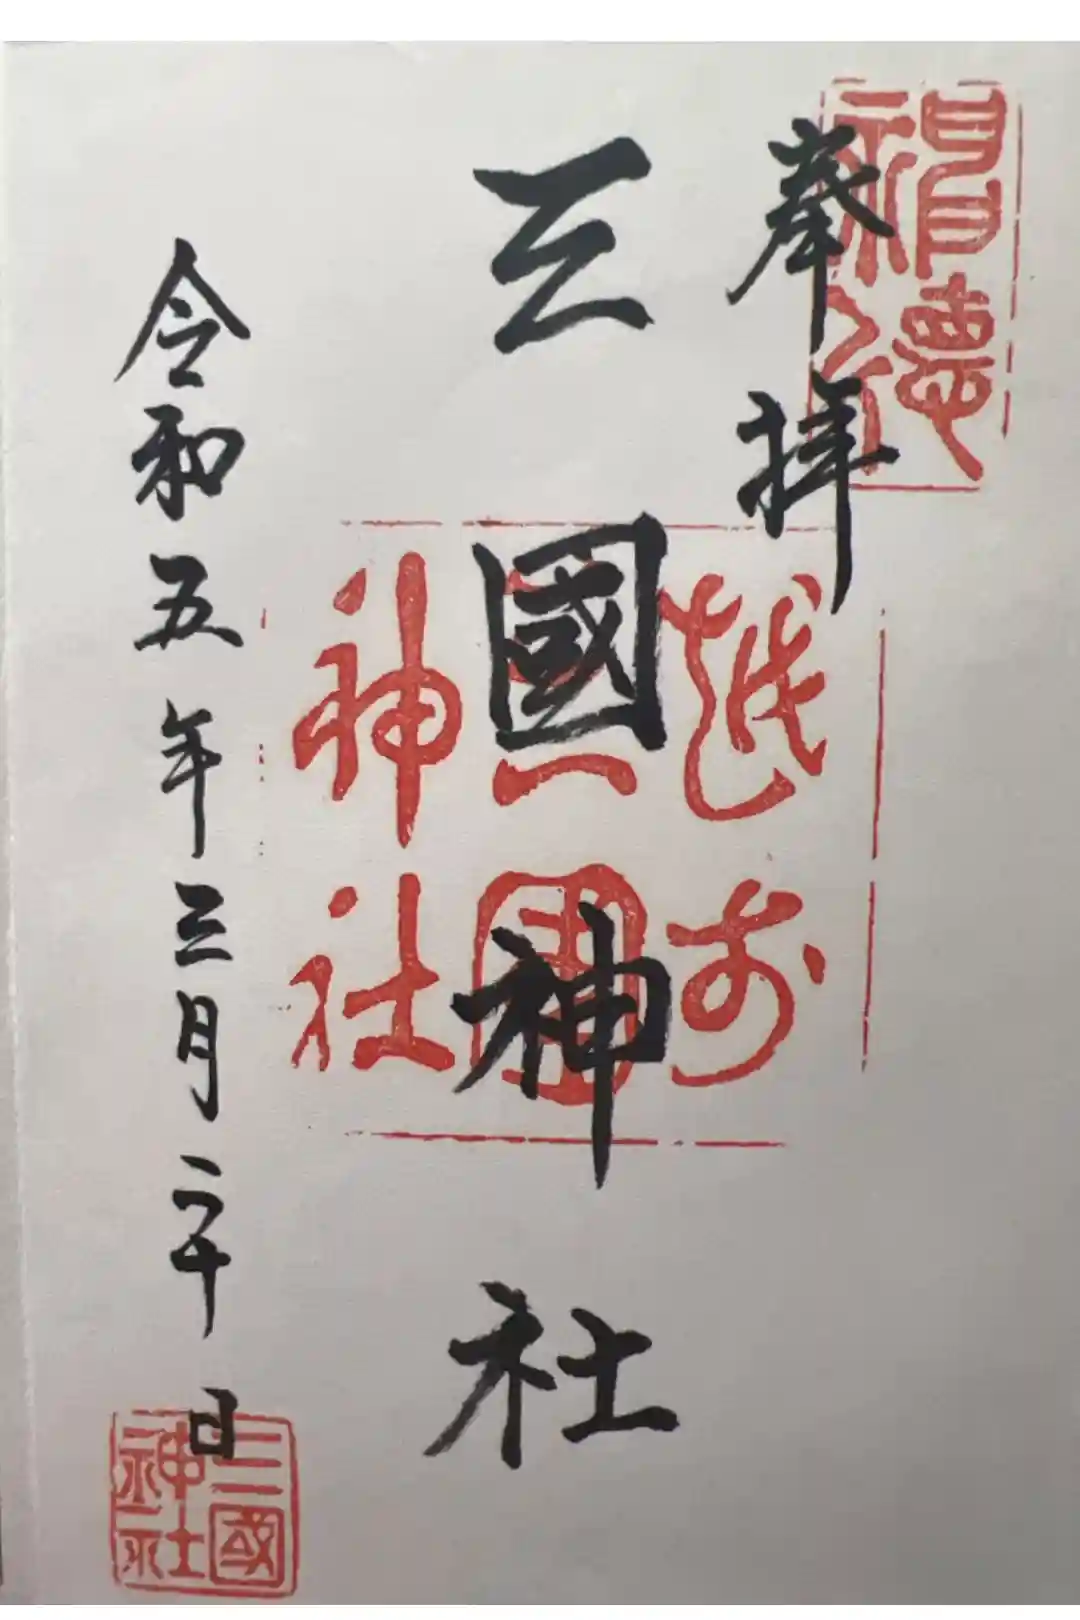 奉拝
越前
三國神社
神社
令和五年三月二十日
三國
神社